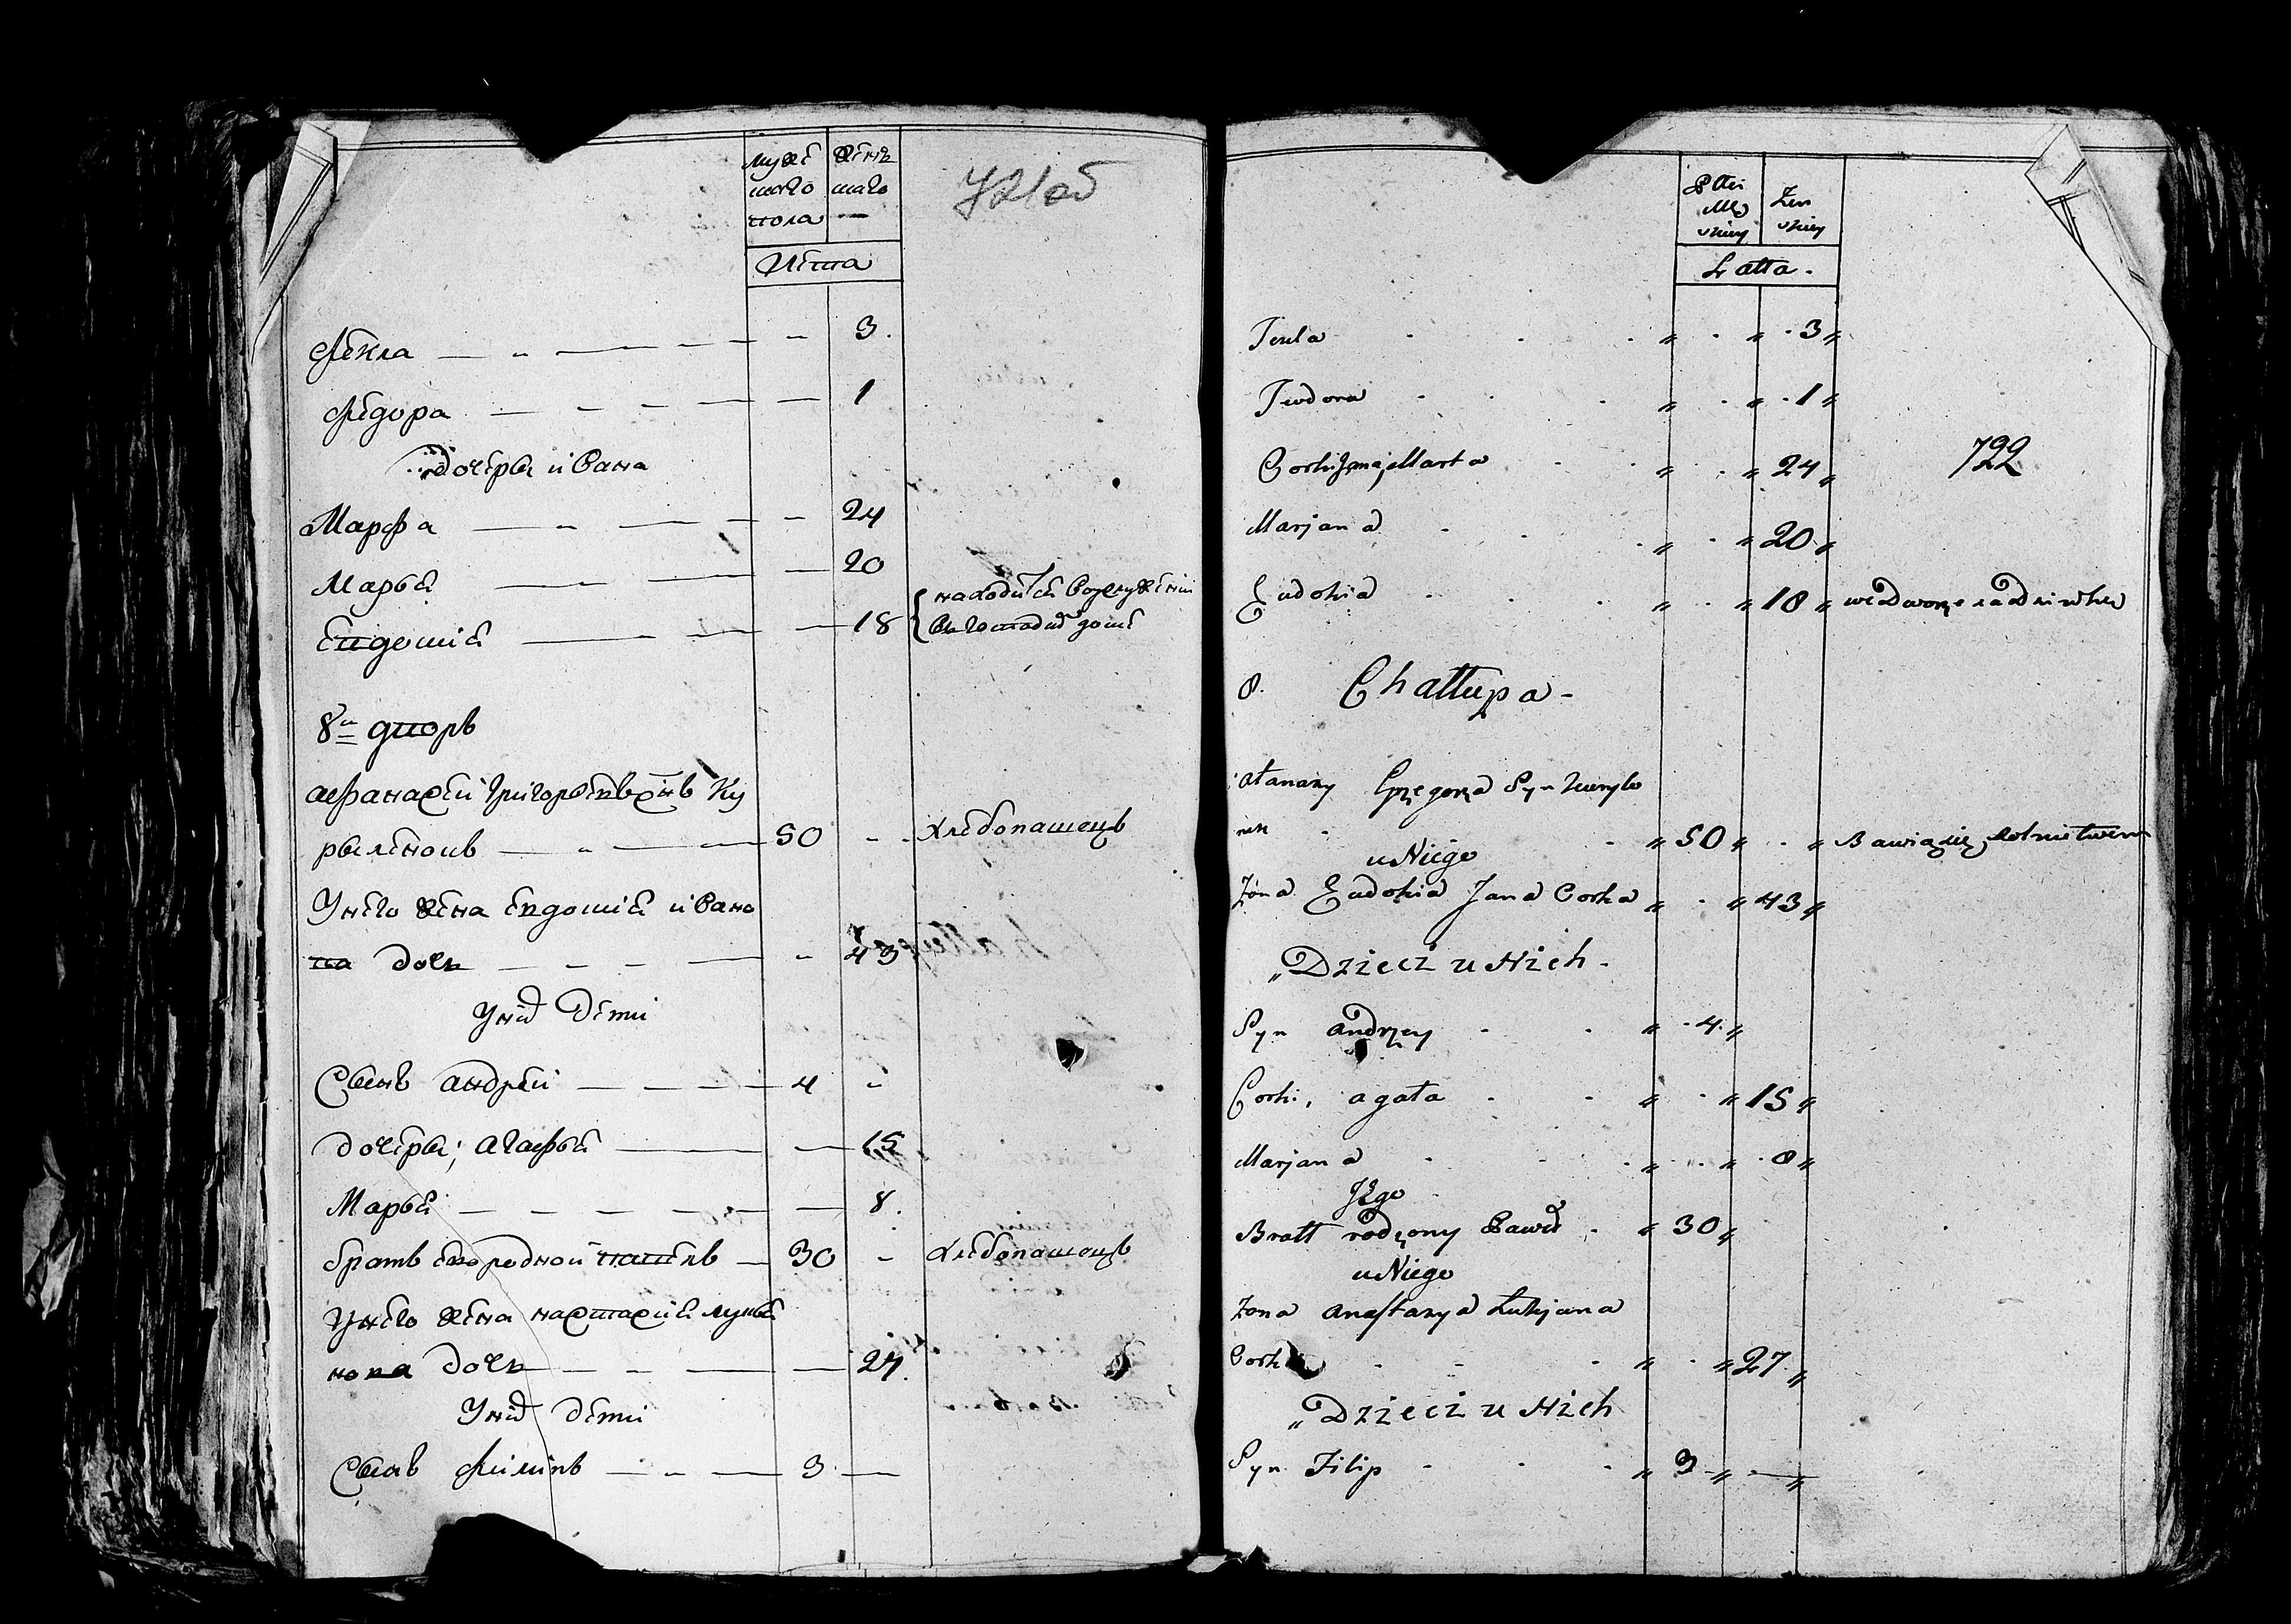 муже женс
скаго каго
пола —
Лета
Фекла — 3.
Федора — 1
дочеры ивана
Марфа — 24
Марья — 20
Евдокия — 18 находится взамужении
8й дворъ
афанасеи григорьевъ сынъ Ку
рыленокъ — 50 - хлебопашецъ
У него жена евдокия ивано
ва дочь — 43
У них дети
Сынъ андреи — 4 -
дочеры; агафья — 15
Марья — 8.
братъ ево родной павелъ — 30 - хлебопашецъ
У него жена настасия лукья
нова дочь — 27.
У них дети
Сынъ филипъ — 3 —
Płci
Mę Żen
skiey skiey
Latta.
Tekla „ . „ 3 „
Teodora „ . „ 1 „
Corki Jana, Marta „ . „ 24 „ 722
Marjana „ . „ 20 „
Eudokia „ . „ 18 „
8. Chattupa -
atanazy Grzegorza Syn Kuryło
nek „ 50 „ . „ Bawi się Rolnictwem
u Niego
Żona Eudokia Jana Corka „ . „ 43 „
„ Dzieci u Nich -
Syn andrzey „ 4. „
Corki, agata „ . „ 15 „
Marjana „ . „ 8 „
Jego
Bratt rodzony Paweł „ 30 „
u Niego
Żona anastazya Łukjana
Corka „ . „ 27 „
„ Dzieci u Nich
Syn Filip „ 3 „ — „